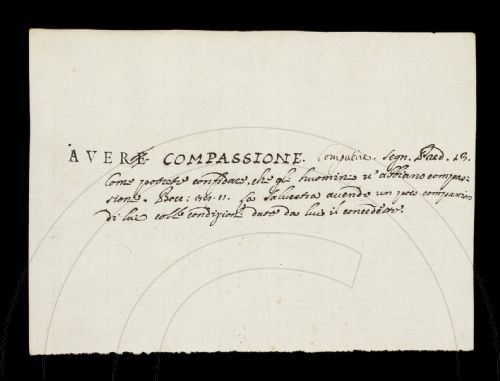 AVERE COMPASSIONE. Compatire. Segn. Pred. 18.
Come potrete confidare, che gli huomini v'abbiano compas-
sione. Bocc: nov. 11. La Salvestra avendo un poco compassion
di lui colle condizioni date da lui il concedette.